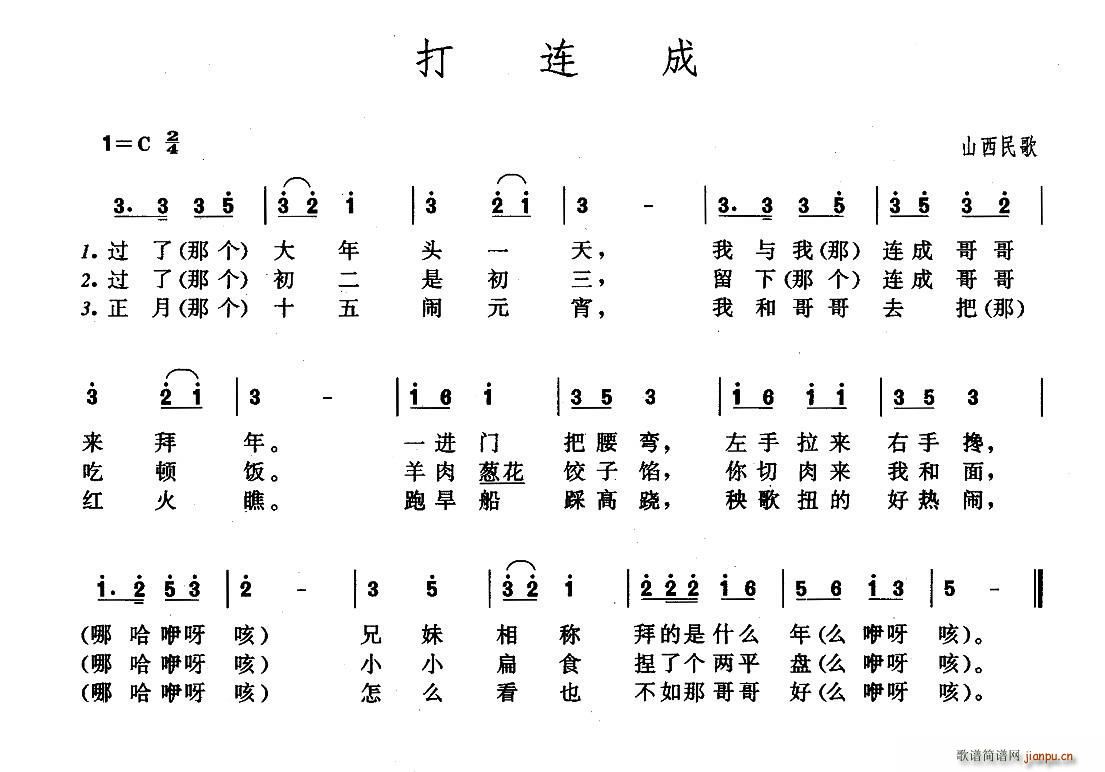 打 连 成
1=C 2/4
山西民歌
3. 3 3 5 | 3 2 1 | 3 2 1 | 3 - | 3. 3 3 5 | 3 5 3 2 |
1. 过 了(那 个) 大 年 头 一 天, 我 与 我(那) 连 成 哥 哥
2. 过 了(那 个) 初 二 是 初 三, 留 下(那 个) 连 成 哥 哥
3. 正 月(那 个) 十 五 闹 元 宵, 我 和 哥 哥 去 把(那)
3 2 1 | 3 - | 1 6 1 | 3 5 3 | 1 6 1 1 | 3 5 3 |
来 拜 年。 一 进 门 把 腰 弯, 左 手 拉 来 右 手 搀,
吃 顿 饭。 羊 肉 葱花 饺 子 馅, 你 切 肉 来 我 和 面,
红 火 瞧。 跑 旱 船 踩 高 跷, 秧 歌 扭 的 好 热 闹,
1. 2 5 3 | 2 - | 3 5 | 3 2 1 | 2 2 2 1 6 | 5 6 1 3 | 5 - ‖
(哪 哈 咿 呀 咳) 兄 妹 相 称 拜 的 是 什 么 年(么 咿 呀 咳)。
(哪 哈 咿 呀 咳) 小 小 扁 食 捏 了 个 两 平 盘(么 咿 呀 咳)。
(哪 哈 咿 呀 咳) 怎 么 看 也 不 如 那 哥 哥 好(么 咿 呀 咳)。
歌谱简谱网 jianpu.cn